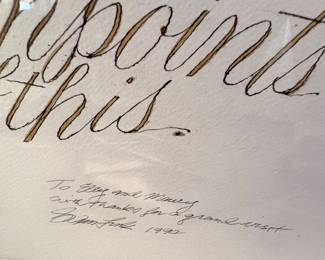 points
this.
To Greg and
with thanks for a grand visit
1992